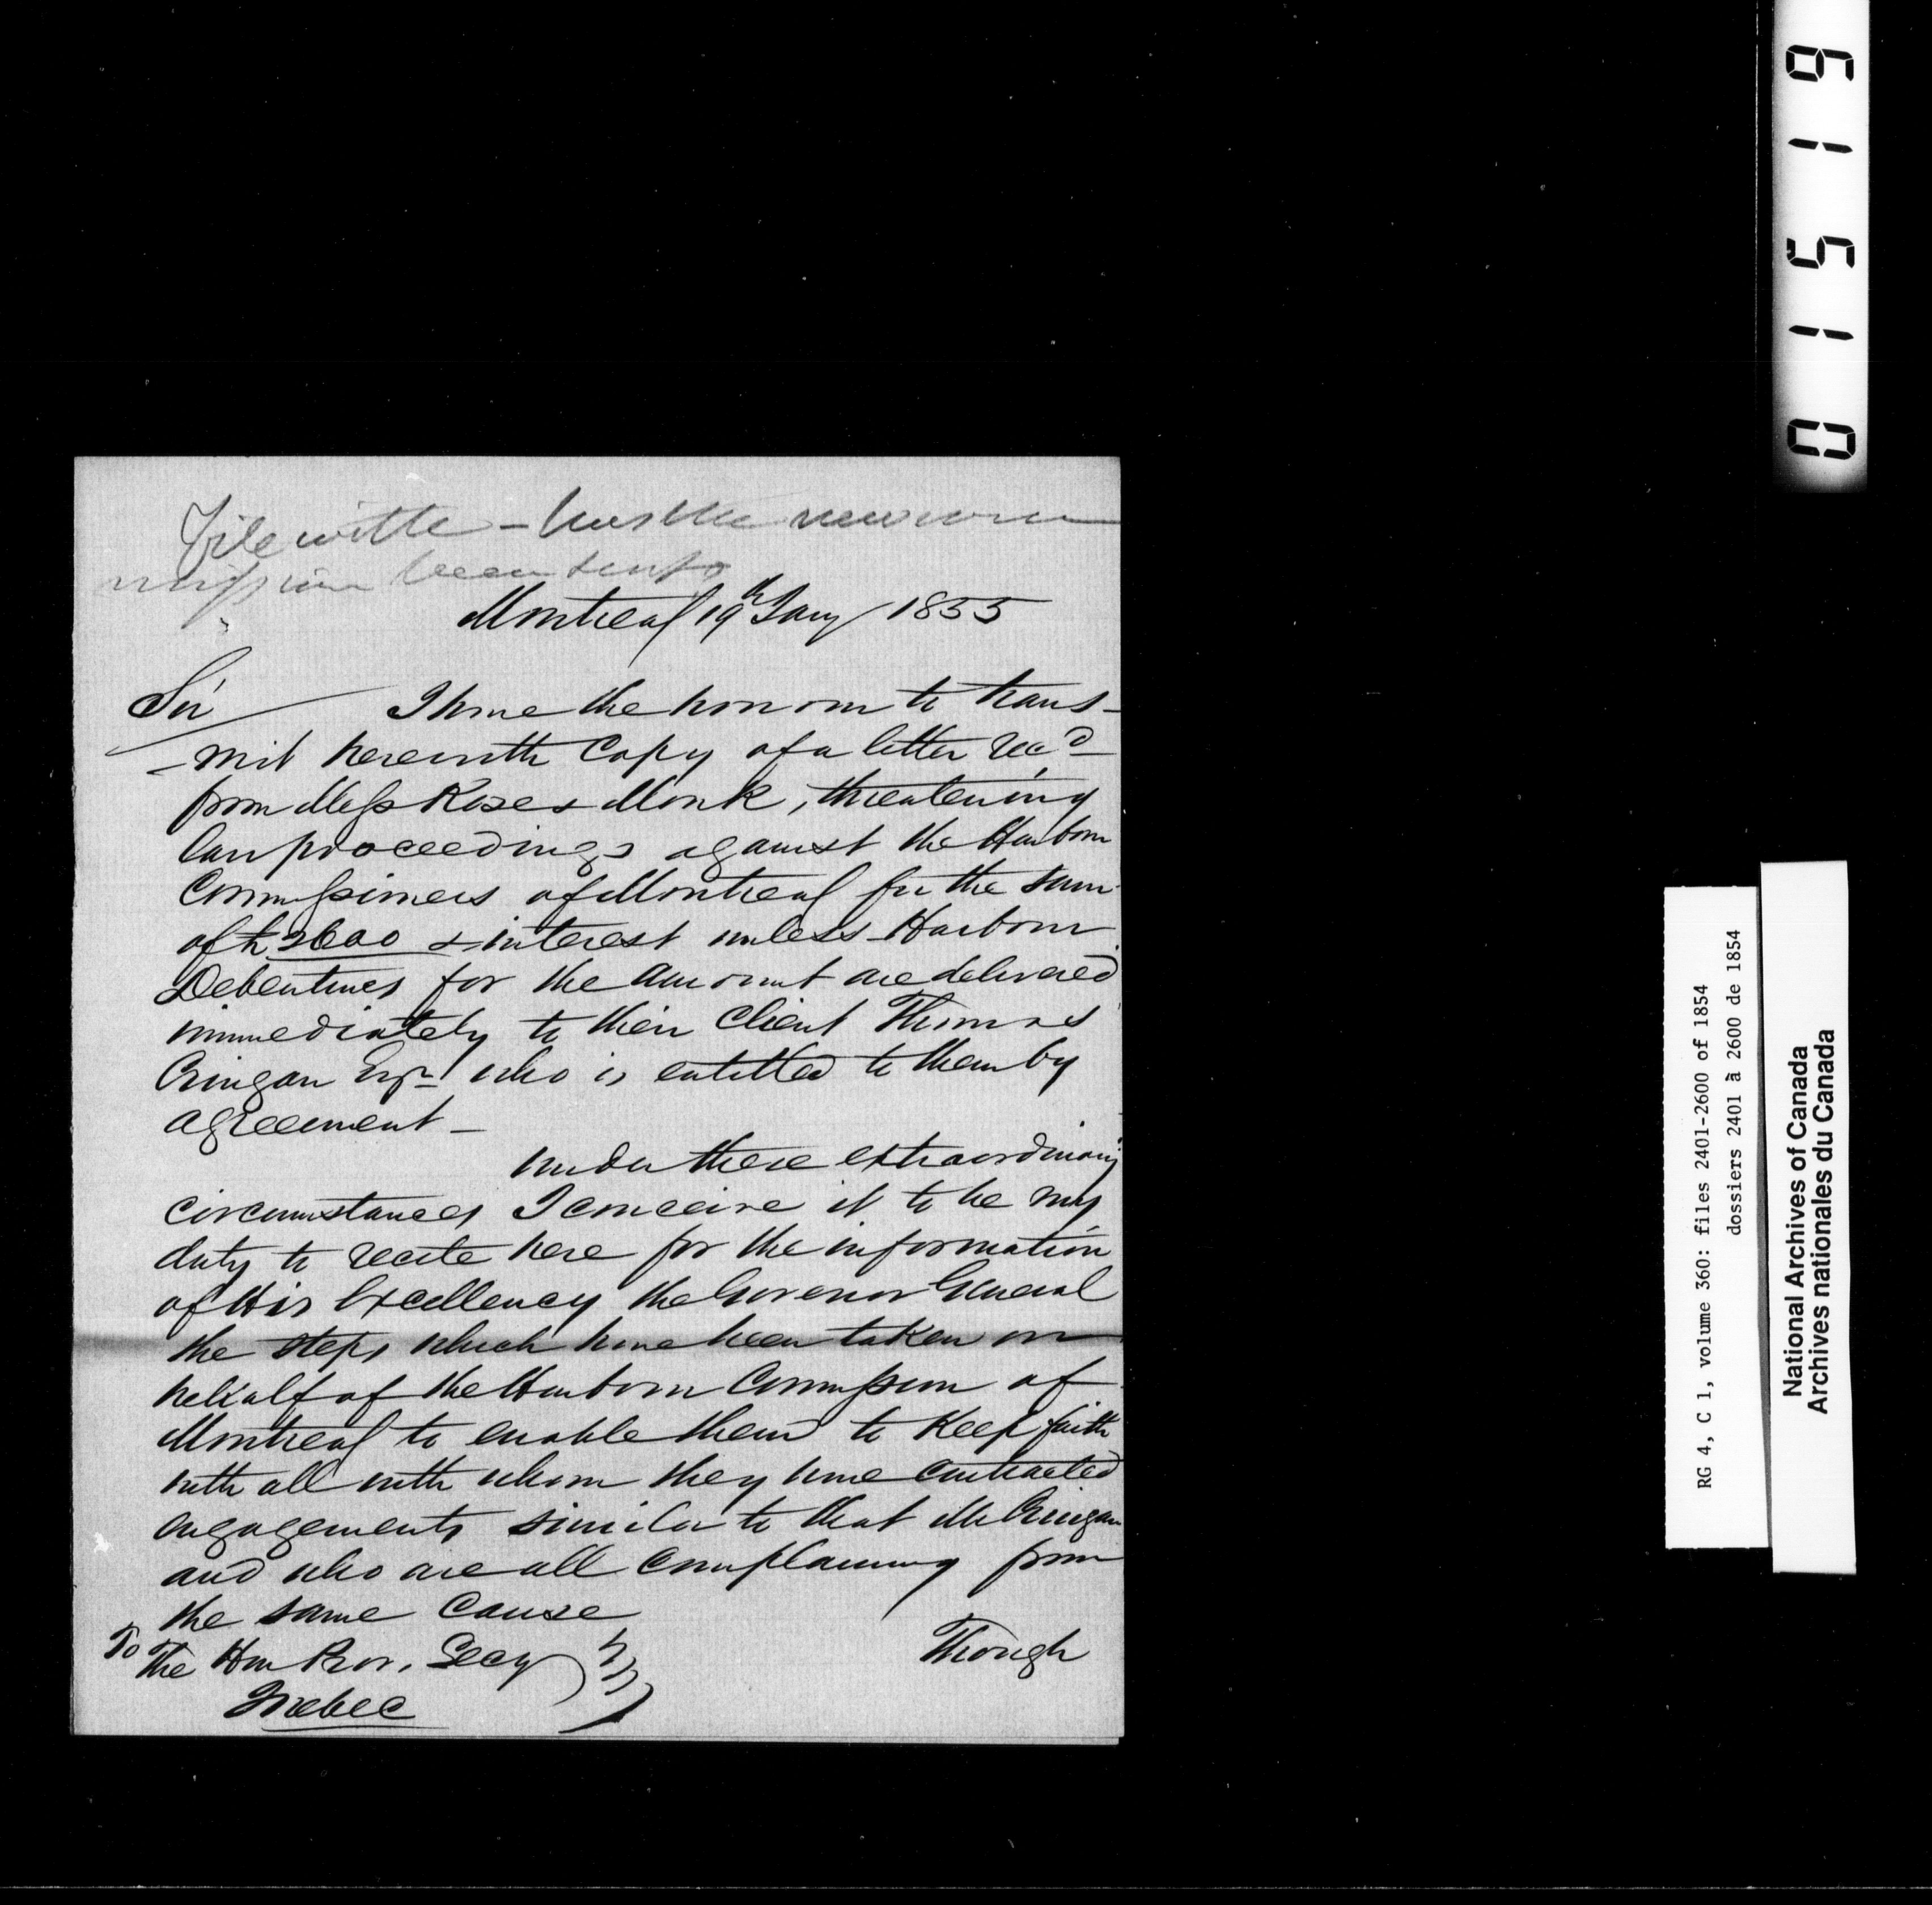 File with — has the new com
mission been sent
Montreal 19th Jany 1855
Sir I have the honour to trans-
-mit herewith Copy of a letter recd
from Mess Rose & Monk, threatening
law proceedings against the Harbour
Commissioners of Montreal for the sum
of £2600 & interest unless Harbour
Debentures for the amount are delivered
immediately to their Client Thomas
Cringan Esqr who is entitled to them by
agreement —
Under these extraordinary
circumstances I conceive it to be my
duty to recite here for the information
of His Excellency the Governor General
the steps which have been taken on
behalf of the Harbour Commission of
Montreal to enable them to keep faith
with all with whom they have contracted
engagements similar to that Mr Cringan
and who are all complaining from
the same Cause
Though
To
The Hon Prov. Secy
Quebec
01519
RG 4, C 1, volume 360: files 2401-2600 of 1854
dossiers 2401 à 2600 de 1854
National Archives of Canada
Archives nationales du Canada